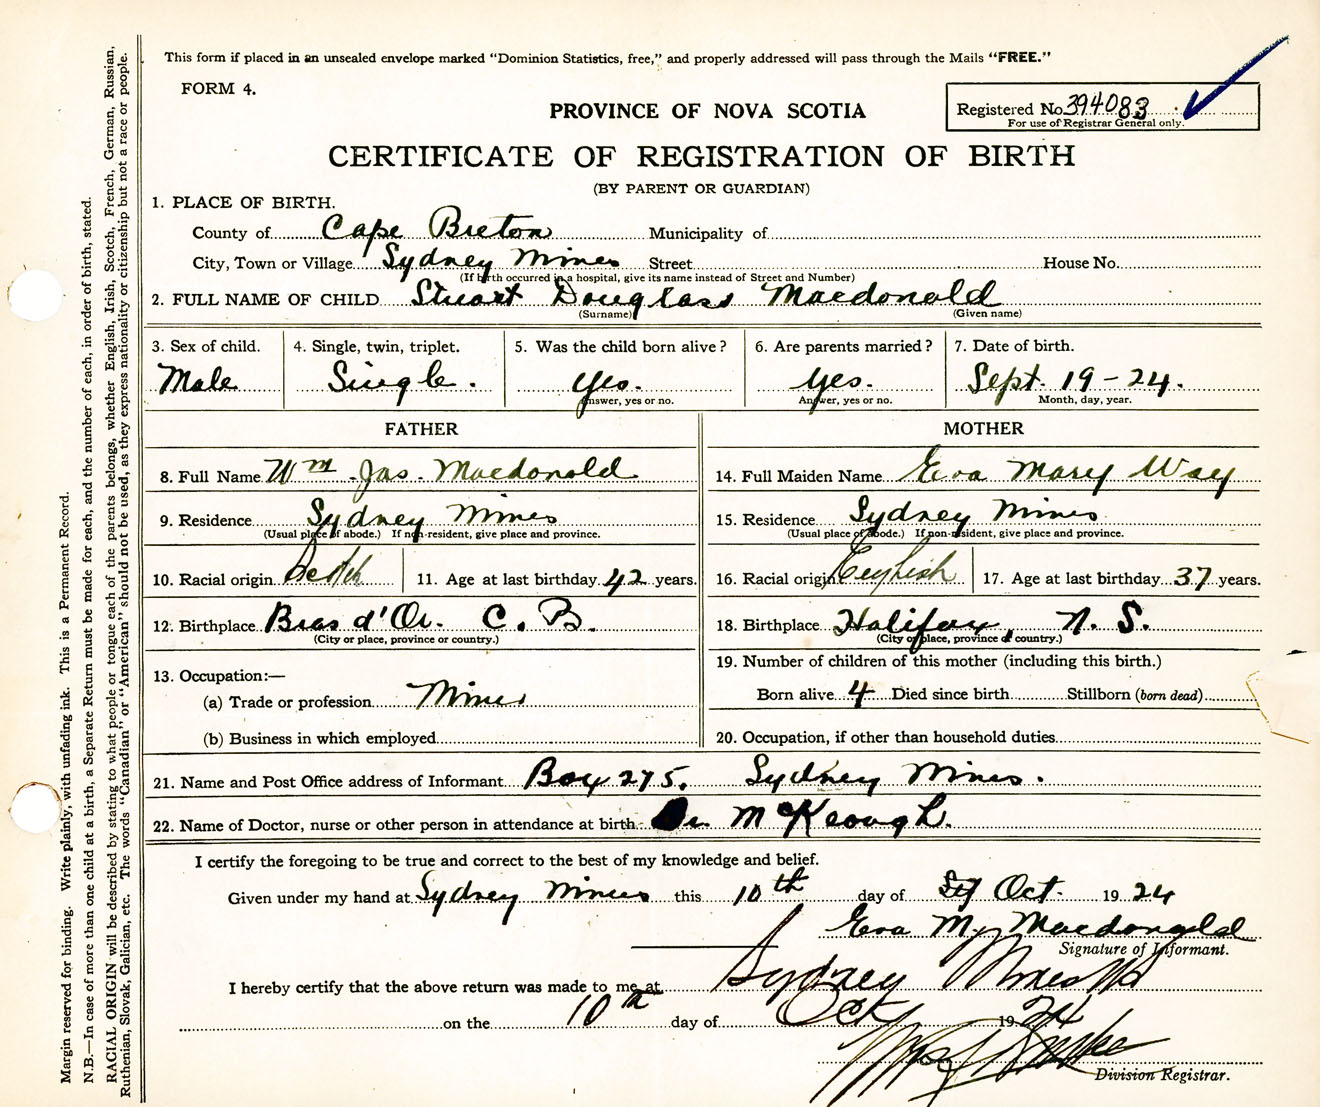 This form if placed in an unsealed envelope marked "Dominion Statistics, free," and properly addressed will pass through the Mails "FREE."
FORM 4.
Registered No. 394083
For use of Registrar General only.
PROVINCE OF NOVA SCOTIA
CERTIFICATE OF REGISTRATION OF BIRTH
(BY PARENT OR GUARDIAN)
1. PLACE OF BIRTH.
County of Cape Breton Municipality of
City, Town or Village Sydney Mines Street House No.
(If birth occurred in a hospital, give its name instead of Street and Number)
2. FULL NAME OF CHILD Stuart Douglass Macdonald
(Surname) (Given name)
3. Sex of child. 4. Single, twin, triplet. 5. Was the child born alive? 6. Are parents married? 7. Date of birth.
Male Single. Yes. Yes. Sept. 19-24.
Answer, yes or no. Answer, yes or no. Month, day, year.
FATHER
8. Full Name Wm Jas. Macdonald
9. Residence Sydney Mines
(Usual place of abode.) If non-resident, give place and province.
10. Racial origin Scotch 11. Age at last birthday 42 years.
12. Birthplace Bras d'Or. C. B.
(City or place, province or country.)
13. Occupation:—
(a) Trade or profession Miner
(b) Business in which employed
MOTHER
14. Full Maiden Name Eva Mary Way
15. Residence Sydney Mines
(Usual place of abode.) If non-resident, give place and province.
16. Racial origin English 17. Age at last birthday 37 years.
18. Birthplace Halifax, N. S.
(City or place, province or country.)
19. Number of children of this mother (including this birth.)
Born alive 4 Died since birth Stillborn (born dead)
20. Occupation, if other than household duties
21. Name and Post Office address of Informant Box 275. Sydney Mines.
22. Name of Doctor, nurse or other person in attendance at birth Dr. McKeough.
I certify the foregoing to be true and correct to the best of my knowledge and belief.
Given under my hand at Sydney Mines this 10th day of Oct. 1924
Eva M. Macdonald
Signature of Informant.
I hereby certify that the above return was made to me at Sydney Mines NS
on the 10th day of Oct 1924
Division Registrar.
Margin reserved for binding. Write plainly, with unfading ink. This is a Permanent Record.
N.B.—In case of more than one child at a birth, a Separate Return must be made for each, and the number of each, in order of birth, stated.
RACIAL ORIGIN will be described by stating to what people or tongue each of the parents belongs, whether English, Irish, Scotch, French, German, Russian,
Ruthenian, Slovak, Galician, etc. The words "Canadian" or "American" should not be used, as they express nationality or citizenship but not a race or people.